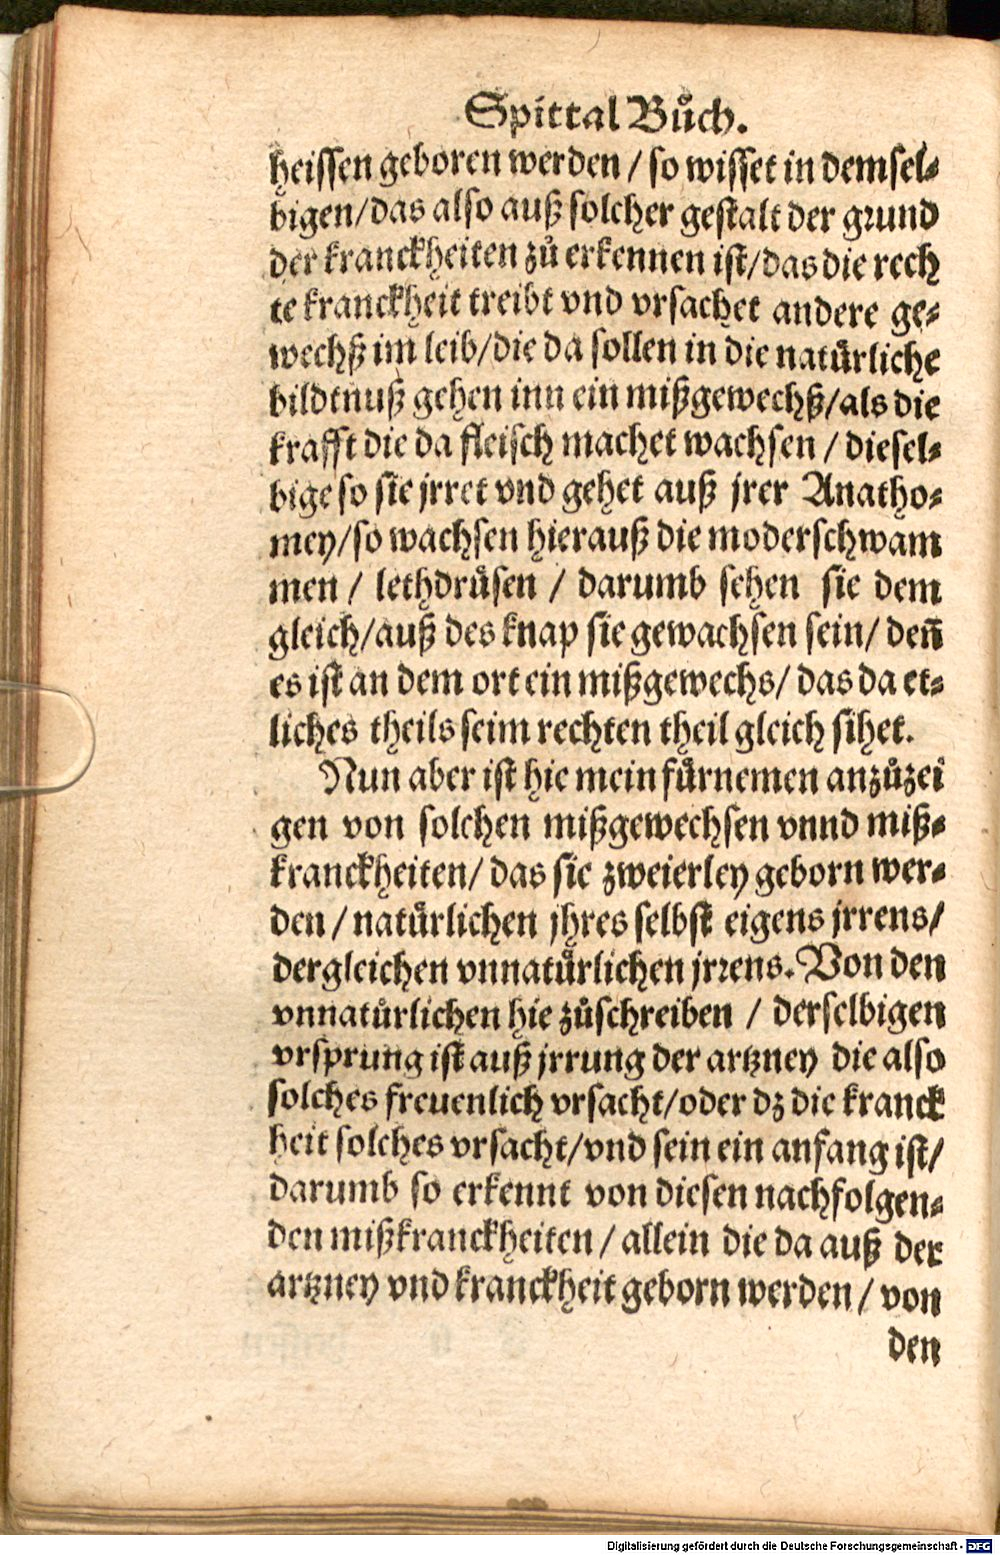 Spittal Bůch.
heissen geboren werden / so wisset in demsel-
bigen/das also auß solcher gestalt der grund
der kranckheiten zů erkennen ist/das die rech
te kranckheit treibt vnd vrsachet andere ge-
wechß im leib/die da sollen in die natürliche
bildtnuß gehen inn ein mißgewechß/als die
krafft die da fleisch machet wachsen / diesel-
bige so sie jrret vnd gehet auß jrer Anatho-
mey/so wachsen hierauß die moderschwam
men / lethdrüsen / darumb sehen sie dem
gleich/auß des knap sie gewachsen sein/ deñ
es ist an dem ort ein mißgewechs/ das da et-
liches theils seim rechten theil gleich sihet.
Nun aber ist hie mein fürnemen anzůzei
gen von solchen mißgewechsen vnnd miß-
kranckheiten/ das sie zweierley geborn wer-
den / natürlichen jhres selbst eigens jrrens/
dergleichen vnnatürlichen jrrens. Von den
vnnatürlichen hie zůschreiben / derselbigen
vrsprung ist auß jrrung der artzney die also
solches freuenlich vrsacht/oder dz die kranck
heit solches vrsacht/vnd sein ein anfang ist/
darumb so erkennt von diesen nachfolgen-
den mißkranckheiten / allein die da auß der
artzney vnd kranckheit geborn werden / von
den
Digitalisierung gefördert durch die Deutsche Forschungsgemeinschaft - DFG